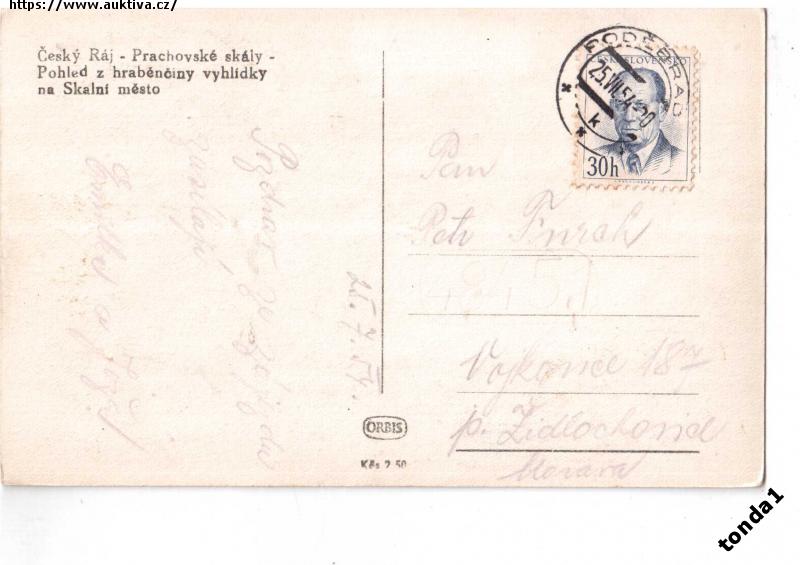 https://www.auktiva.cz/
Český Ráj - Prachovské skály -
Pohled z hraběnčiny vyhlídky
na Skalní město
PODĚBRADY
25.VII.54
k
ČESKOSLOVENSKO
30h
Pozdrav ze zájezdu
zasílají
a
25.7.54.
Pan
Petr
Vojkovice 187
p. Židlochovice
Morava
ORBIS
Kčs 2.50
tonda1